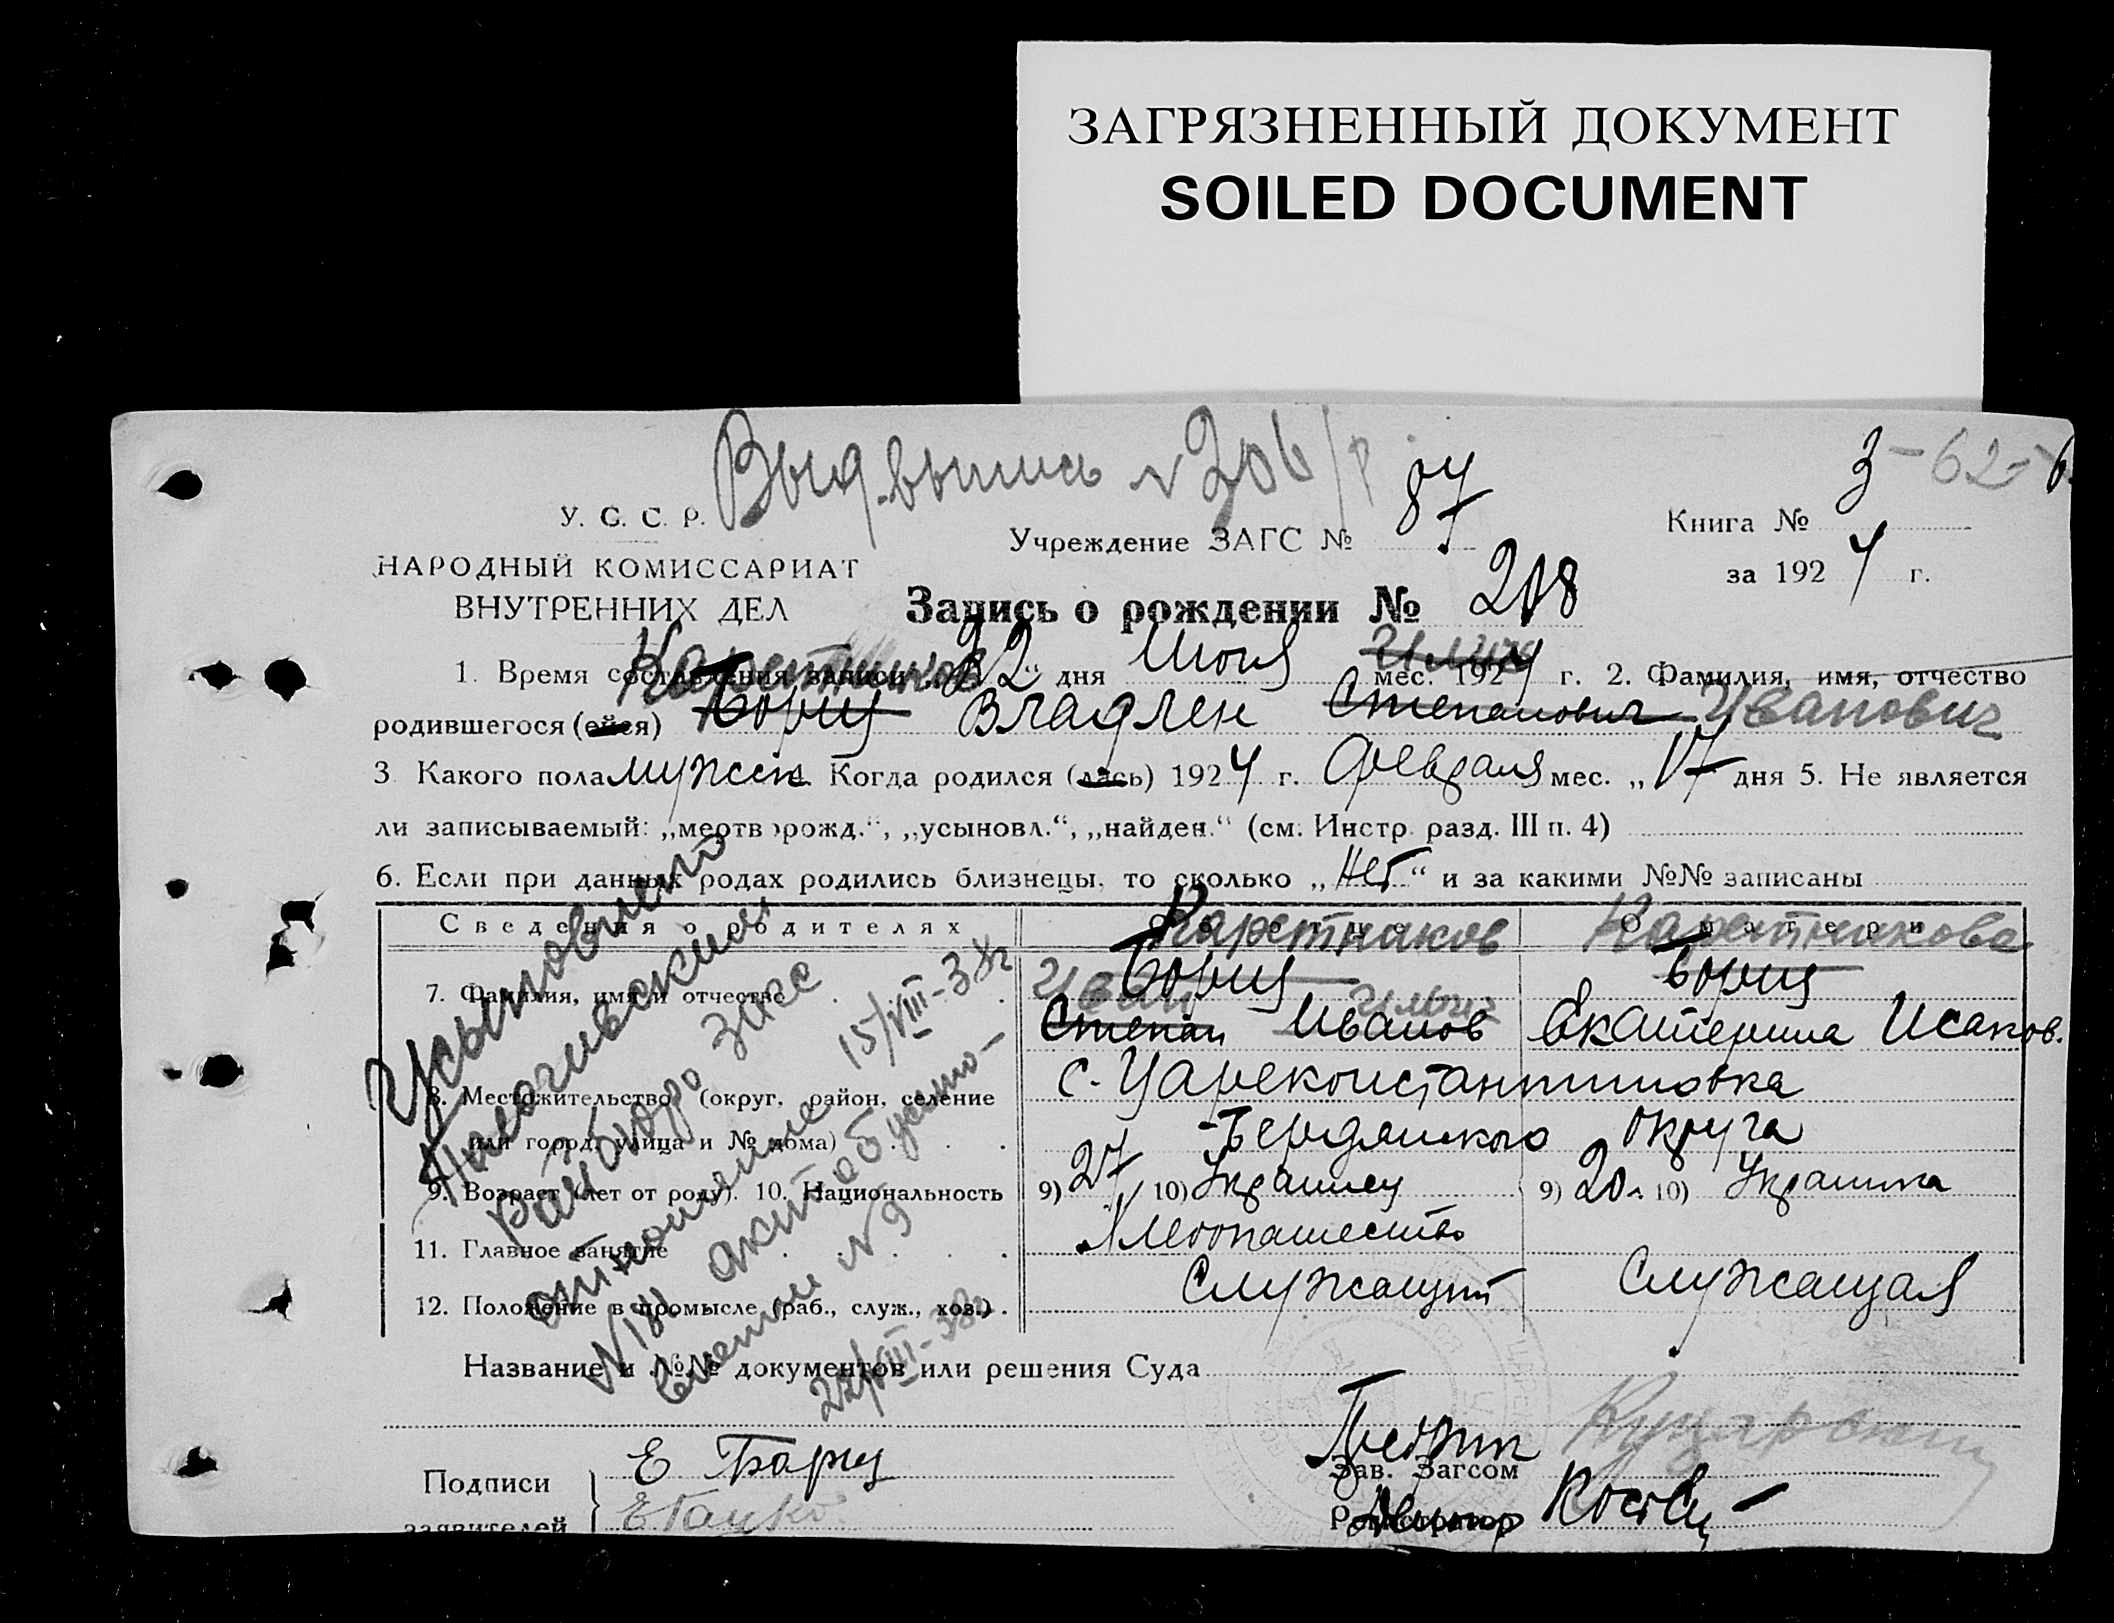 ЗАГРЯЗНЕННЫЙ ДОКУМЕНТ
SOILED DOCUMENT
Выд. выпись № 206/р
3 - 62 -
У. С. С. Р.
Учреждение ЗАГС № 87
Книга №
НАРОДНЫЙ КОМИССАРИАТ
за 1924 г.
ВНУТРЕННИХ ДЕЛ
Запись о рождении № 218
Каретников
1. Время составления записи „22“ дня Июля мес. 1924 г. 2. Фамилия, имя, отчество
родившегося (ейся) Борщ Владлен Степанович Иванович
3 Какого пола мужск 4. Когда родился (лась) 1924 г. Февраля мес. „17“ дня 5. Не является
ли записываемый: „мертворожд.“, „усыновл.“, „найден.“ (см. Инстр. разд. III п. 4)
6. Если при данных родах родились близнецы, то сколько „Нет“ и за какими №№ записаны
Сведения о родителях
О б о т ц е
О м а т е р и
Каретников
Каретникова
Борщ
Борщ
7. Фамилия, имя и отчество
Иван Ильич
Степан Иванов
Екатерина Исаков.
8. Местожительство (округ, район, селение
с. Цареконстантиновка
или город, улица и № дома)
Бердянского округа
9. Возраст (лет от роду). 10. Национальность
9) 27 10) Украинец
9) 20 л 10) Украинка
11. Главное занятие
Хлебопашество
12. Положение в промысле (раб., служ., хоз.)
Служащий
Служащая
Усыновлено
райбюро загс
отношение 15/VIII-38г
№ 181 акт об усыно-
влении № 9
22/VIII-38г
Название и №№ документов или решения Суда
Подписи
заявителей
Е Борщ
Зав. Загсом
Регистратор